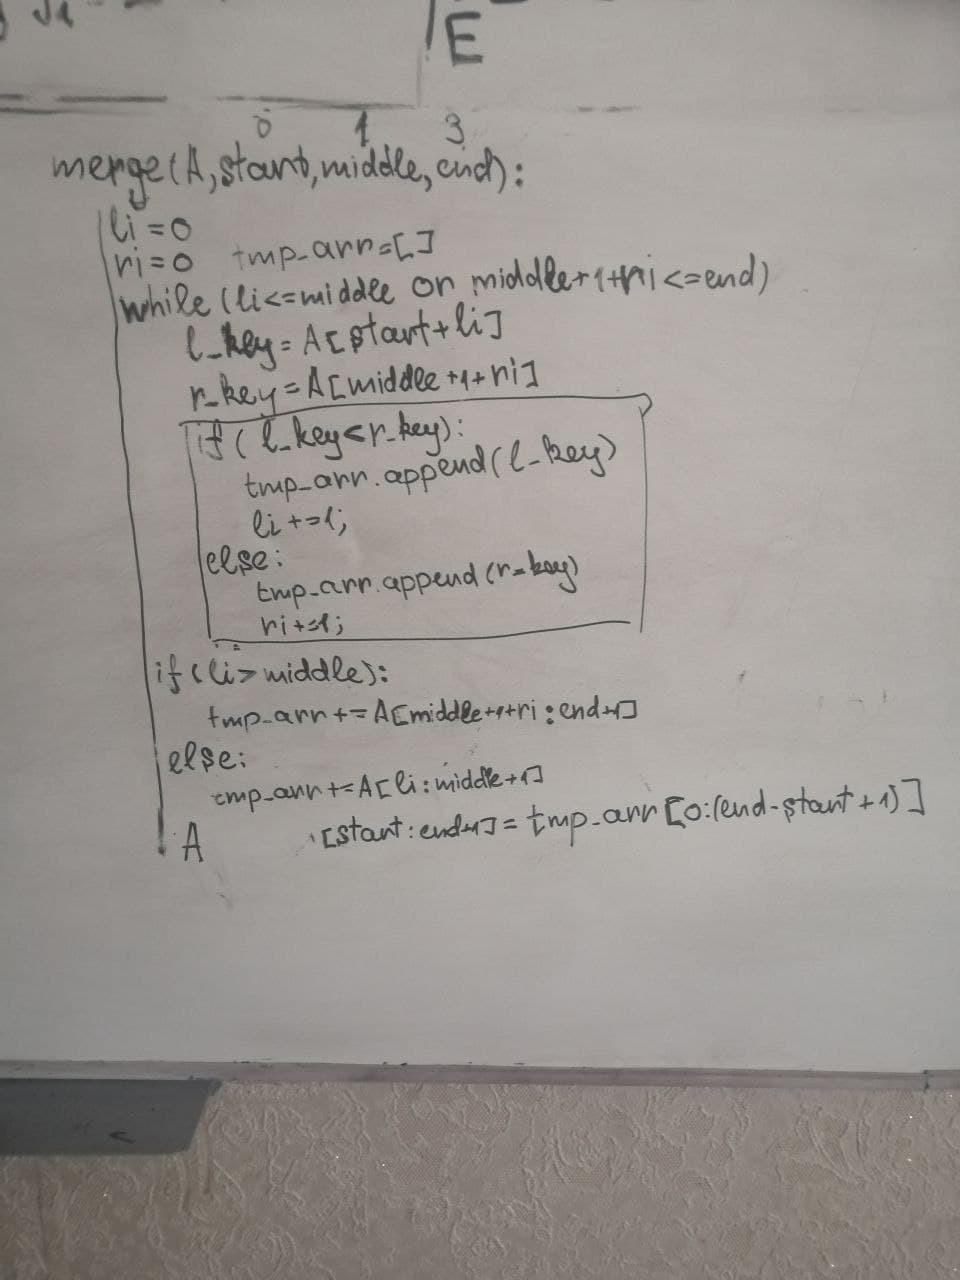 E
0 1 3
merge(A,start,middle,end):
li=0
ri=0 tmp_arr=[]
while (li<=middle or middle+1+ri<=end)
l_key=A[start+li]
r_key=A[middle+1+ri]
if(l_key<r_key):
tmp_arr.append(l_key)
li+=1;
else:
tmp_arr.append(r_key)
ri+=1;
if(li>middle):
tmp_arr+=A[middle+1+ri:end+1]
else:
tmp_arr+=A[li:middle+1]
A [start:end+1]=tmp_arr[0:(end-start+1)]